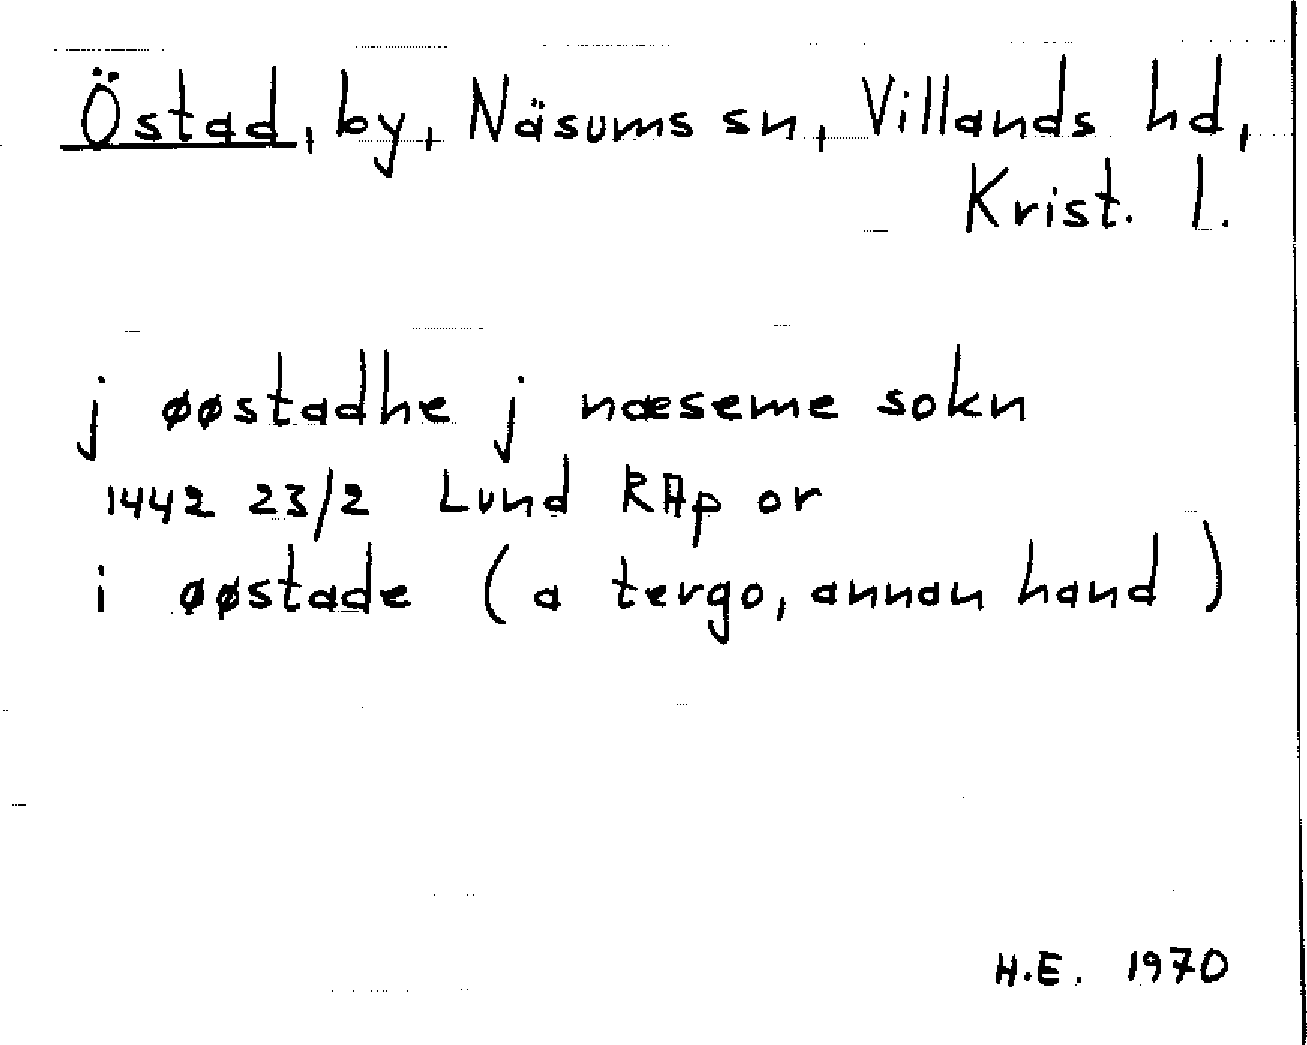 Östad, by, Näsums sn, Villands hd,
Krist. l.
j øøstadhe j næseme sokn
1442 23/2 Lund RAp or
i øøstade (a tergo, annan hand)
H.E. 1970